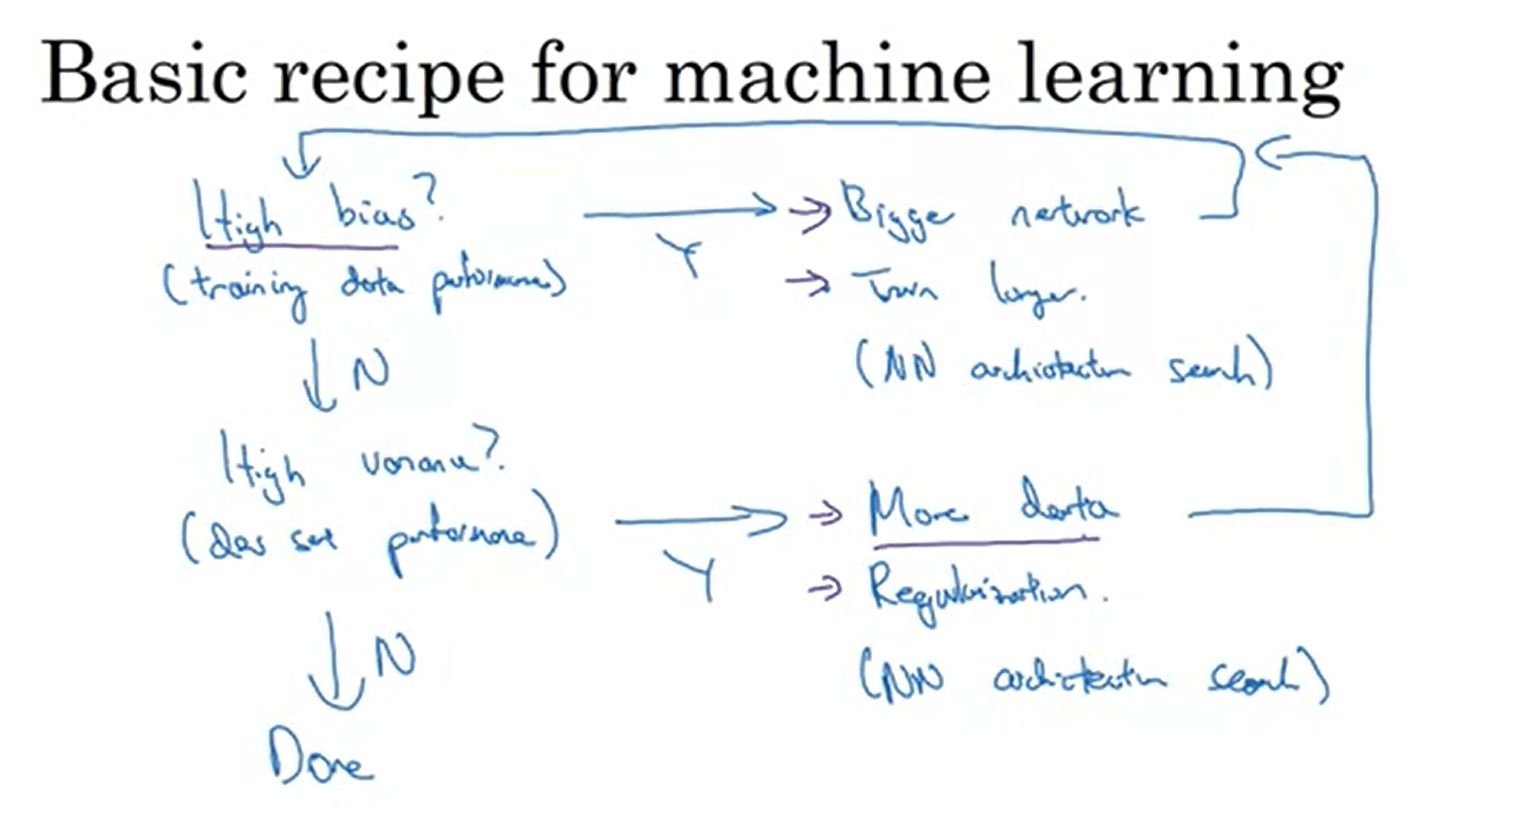 Basic recipe for machine learning
High bias?
(training data performance)
Y
→ Bigger network
→ Train longer.
(NN architecture search)
↓ N
High variance?
(dev set performance)
Y
→ More data
→ Regularization.
(NN architecture search)
↓ N
Done